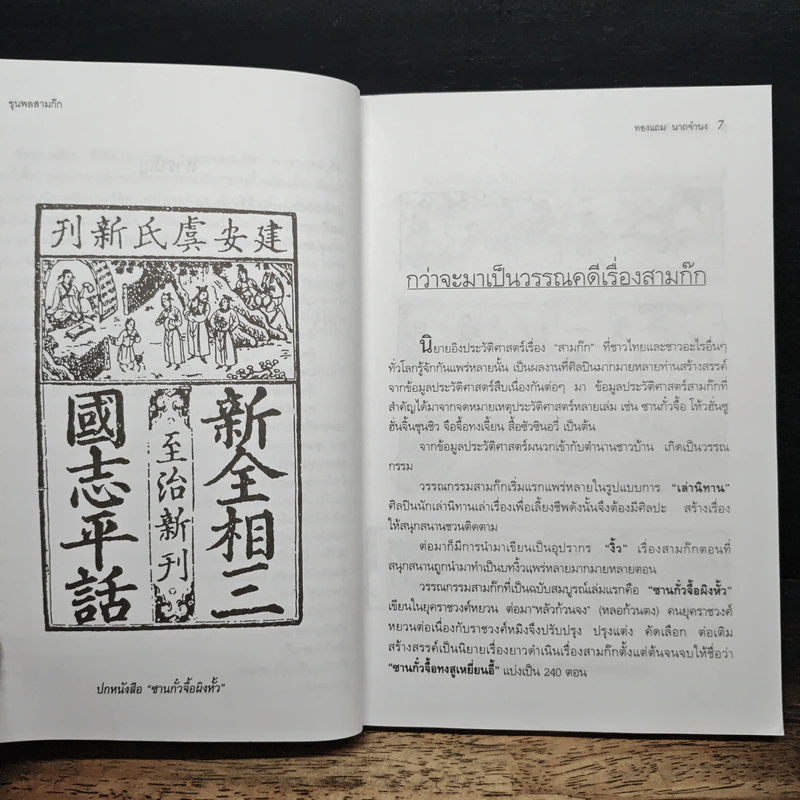 ขุนพลสามก๊ก
建安虞氏新刊
新全相三
至治新刊
國志平話
ปกหนังสือ “ซานกั๋วจื้อผิงหั้ว”
ทองแถม นาถจำนง 7
กว่าจะมาเป็นวรรณคดีเรื่องสามก๊ก
นิยายอิงประวัติศาสตร์เรื่อง “สามก๊ก” ที่ชาวไทยและชาวอะไรอื่นๆ
ทั่วโลกรู้จักกันแพร่หลายนั้น เป็นผลงานที่ศิลปินมากมายหลายท่านสร้างสรรค์
จากข้อมูลประวัติศาสตร์สืบเนื่องกันต่อๆ มา ข้อมูลประวัติศาสตร์สามก๊กที่
สำคัญได้มาจากจดหมายเหตุประวัติศาสตร์หลายเล่ม เช่น ซานกั๋วจื้อ โห้วฮั่นซู
ฮั่นจิ้นชุนชิว จือจื้อทงเจี้ยน สื้อซัวซินอวี่ เป็นต้น
จากข้อมูลประวัติศาสตร์ผนวกเข้ากับตำนานชาวบ้าน เกิดเป็นวรรณ
กรรม
วรรณกรรมสามก๊กเริ่มแรกแพร่หลายในรูปแบบการ “เล่านิทาน”
ศิลปินนักเล่านิทานเล่าเรื่องเพื่อเลี้ยงชีพดังนั้นจึงต้องมีศิลปะ สร้างเรื่อง
ให้สนุกสนานชวนติดตาม
ต่อมาก็มีการนำมาเขียนเป็นอุปรากร “งิ้ว” เรื่องสามก๊กตอนที่
สนุกสนานถูกนำมาทำเป็นบทงิ้วแพร่หลายมากมายหลายตอน
วรรณกรรมสามก๊กที่เป็นฉบับสมบูรณ์เล่มแรกคือ “ซานกั๋วจื้อผิงหั้ว”
เขียนในยุคราชวงศ์หยวน ต่อมา“หลัวก้วนจง” (หลอก้วนตง) คนยุคราชวงศ์
หยวนต่อเนื่องกับราชวงศ์หมิงจึงปรับปรุง ปรุงแต่ง คัดเลือก ต่อเติม
สร้างสรรค์เป็นนิยายเรื่องยาวดำเนินเรื่องสามก๊กตั้งแต่ต้นจนจบให้ชื่อว่า
“ซานกั๋วจื้อทงสูเหยี่ยนอี้” แบ่งเป็น 240 ตอน